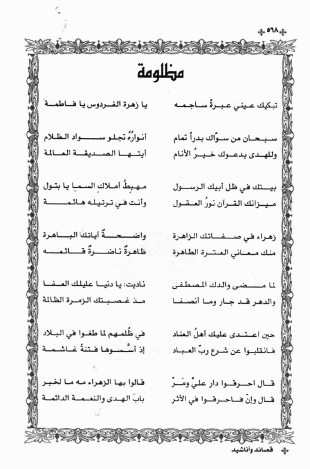 ٥٦٨
مظلومة
تبكيك عيني عبرةً ساجمه يا زهرة الفردوس يا فاطمة
سبحان من سوّاك بدراً تمام أنوارُهُ تجلو سواد الظلام
وللهدى يدعوك خيرُ الأنام أيتها الصديقة العالمة
بيتك في ظل أبيك الرسول مهبطُ أملاك السما يا بتول
ميزانك القرآن نورُ العقول وأنت في ترتيله هائمة
زهراء في صفاتك الزاهرة واضحةٌ آياتك الباهرة
منك معاني العترة الطاهرة ظاهرةٌ ناضرةٌ قائمه
لما مضى والدك المصطفى ناديت: يا دنيا عليك العفا
والدهر قد جار وما أنصفا مذ غصبتك الزمرة الظالمة
حين اعتدى عليك أهلُ العناد في ظلمهم لما طغوا في البلاد
فانقلبوا عن شرع ربّ العباد إذ أسسوها فتنةً غاشمة
قال احرقوا دار عليٍّ ومَرّ قالوا بها الزهراء مه ما لخبر
قال وإنْ فاحرقوا في الأثر بابَ الهدى والنعمة الدائمة
قصائد وأناشيد